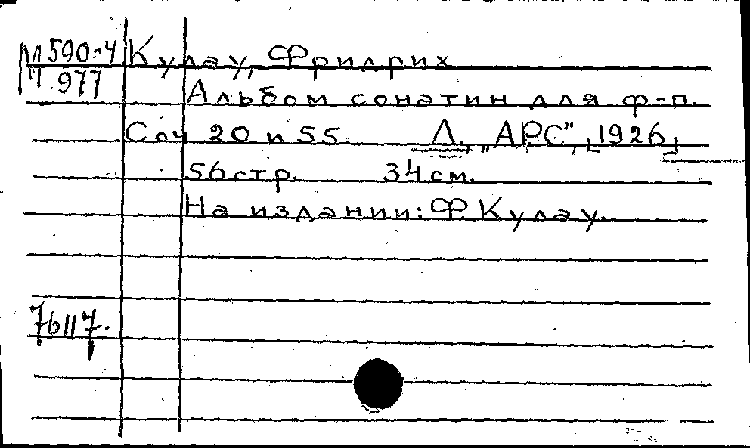 М590-4 Кулау, Фридрих
М977 Альбом сонатин для ф-п.
Соч 20 и 55. Л. „АРС", [1926]
56 стр. 34 см.
На издании: Ф Кулау.
76117.